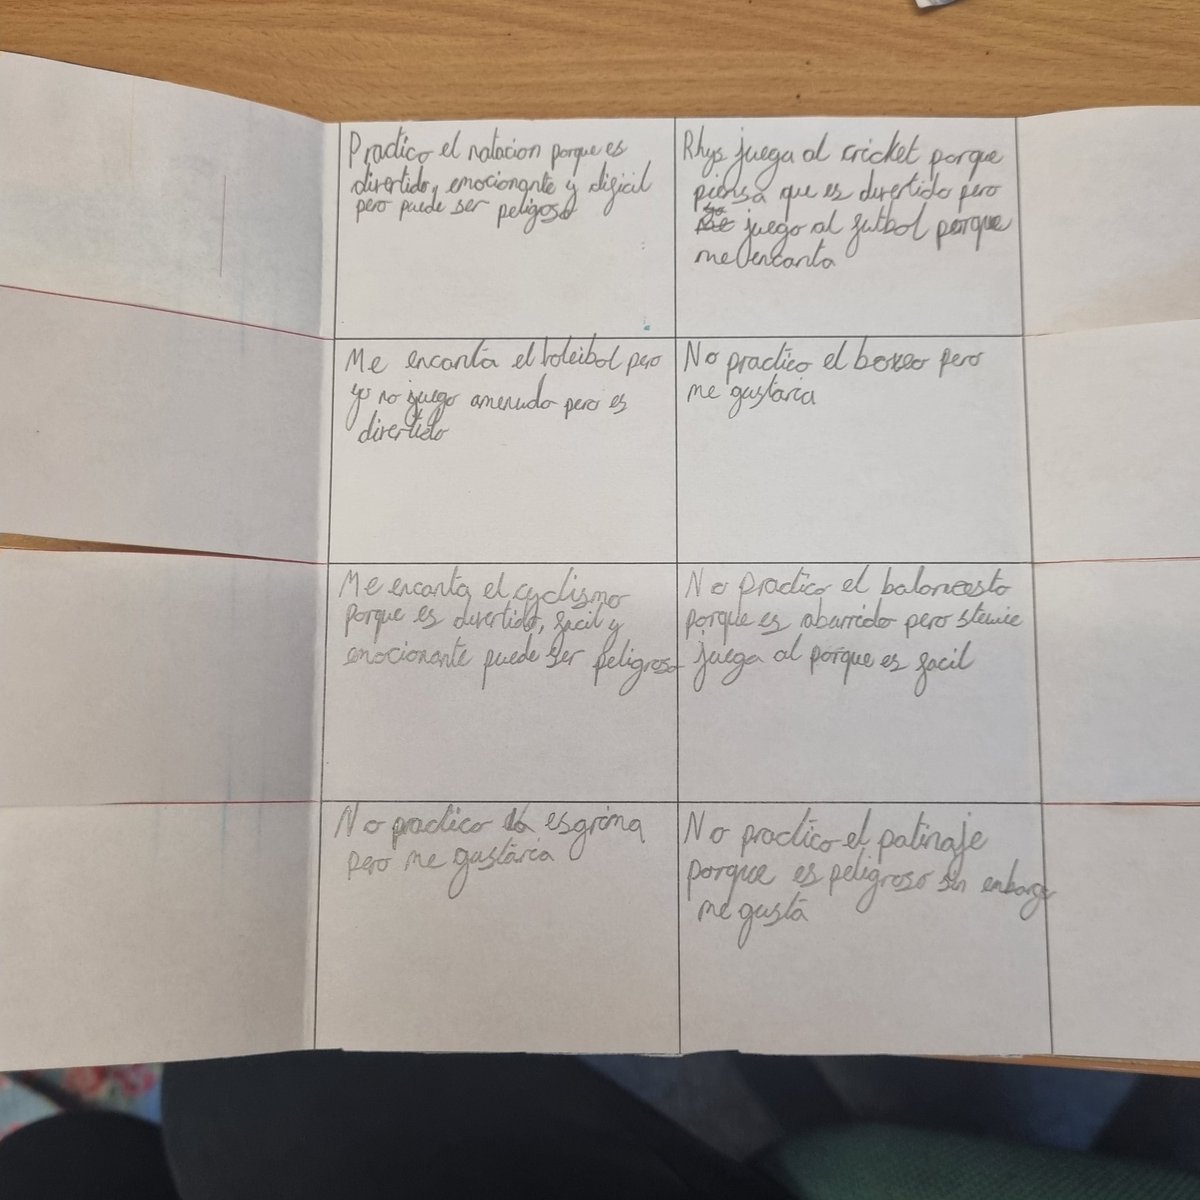 Practico el natacion porque es
divertido, emocionante y dificil
pero puede ser peligroso
Rhys juega al cricket porque
piensa que es divertido pero
yo juego al futbol porque
me encanta
Me encanta el voleibol pero
yo no juego amenudo pero es
divertido
No practico el boxeo pero
me gustaria
Me encanta el cyclismo
porque es divertido, facil y
emocionante puede ser peligroso
No practico el baloncesto
porque es aburrido pero stewie
juega al porque es facil
No practico la esgrima
pero me gustaria
No practico el patinaje
porque es peligroso sin embargo
me gusta